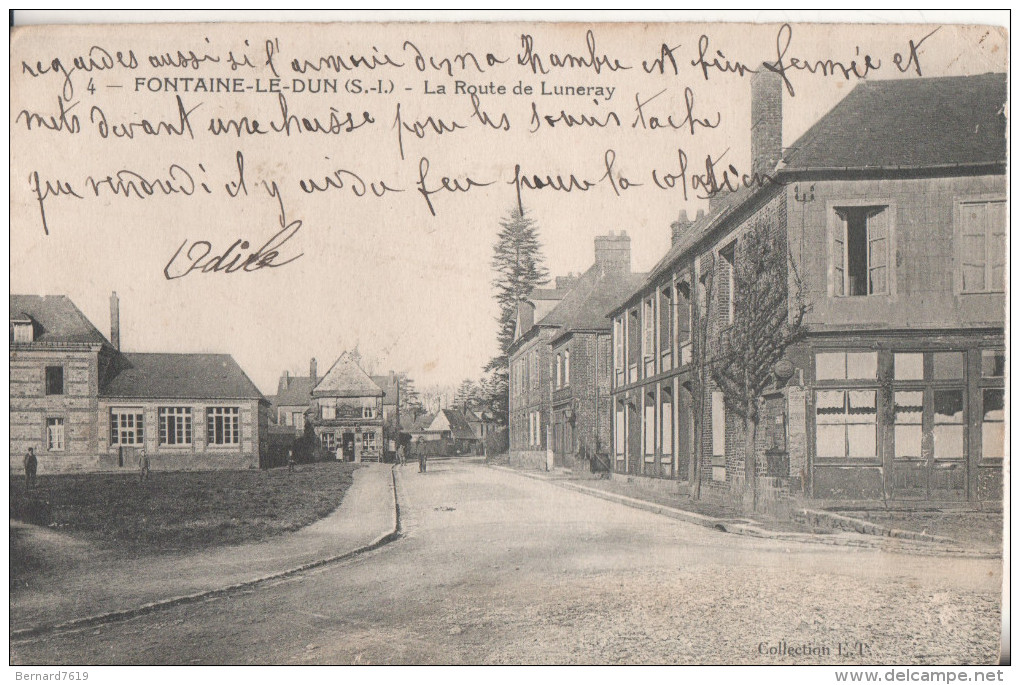 regardes aussi si l'armoire de ma chambre est bien fermée et
4 — FONTAINE-LE-DUN (S.-I.) - La Route de Luneray
mets devant une chaisse pour les souris tache
que vendredi il y ai du feu pour la colation
Odile
Collection E. T.
Bernard7619
www.delcampe.net